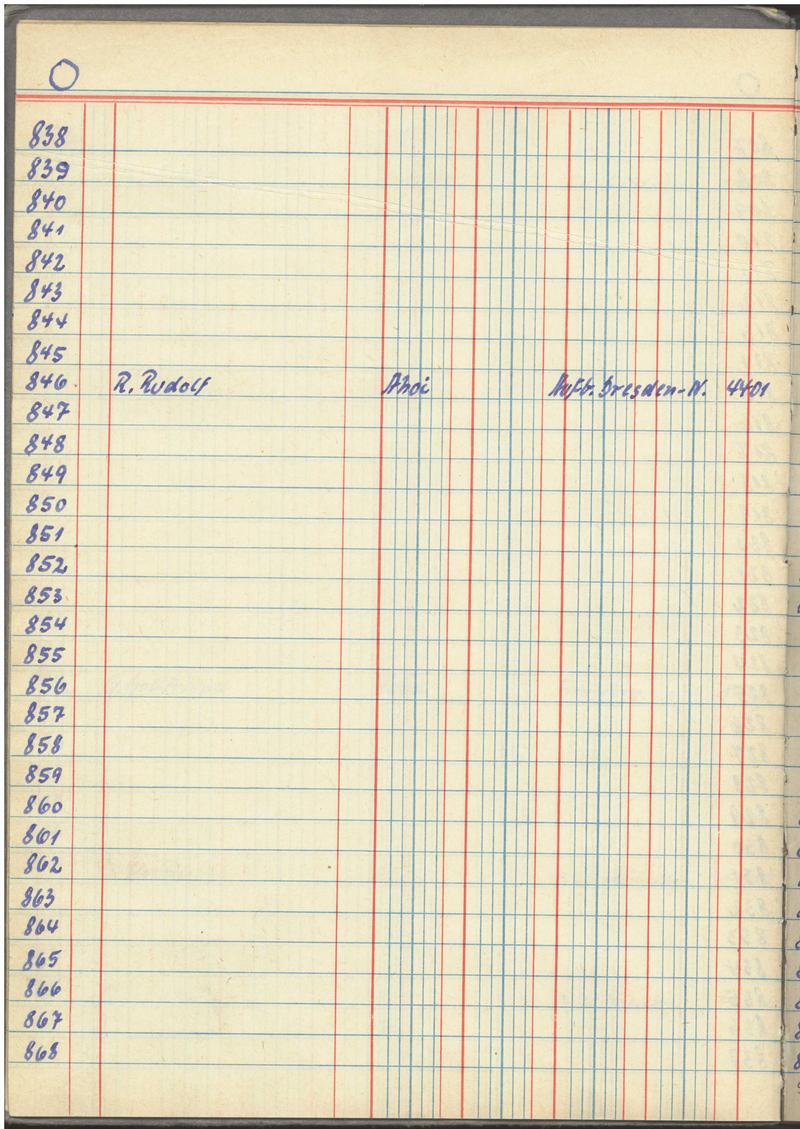 O
838
839
840
841
842
843
844
845
846 R. Rudolf Ahoi Aufb. Dresden-N. 4401
847
848
849
850
851
852
853
854
855
856
857
858
859
860
861
862
863
864
865
866
867
868